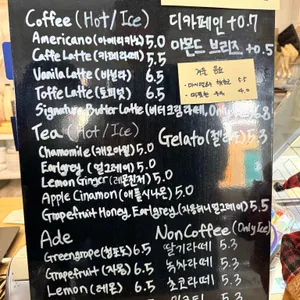 Coffee (Hot/Ice)
디카페인 +0.7
Americano (아메리카노) 5.0
아몬드 브리즈 +0.5
Caffe Latte (카페라떼) 5.5
Vanila Latte (바닐라) 6.5
Toffe Latte (토피넛) 6.5
Signature Butter Latte (버터크림라떼, Only 6.8
5.5
4.0
Tea (Hot/Ice)
Chamomile (캐모마일) 5.0
Earlgrey (얼그레이) 5.0
Lemon Ginger (레몬진저) 5.0
Apple Cinamon (애플시나몬) 5.0
Grapefruit Honey Earlgrey (자몽허니얼그레이) 5.5
Gelato (젤라또) 5.3
Ade
Greengrope (청포도) 6.5
Grapefruit (자몽) 6.5
Lemon (레몬) 6.5
NonCoffee (Only Ice)
딸기라떼 5.3
녹차라떼 5.3
초코라떼 5.3
5.3